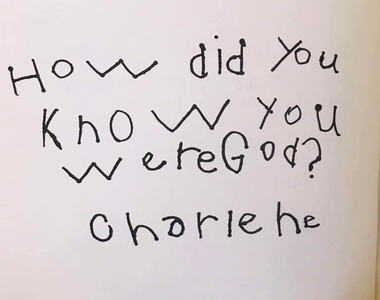 How did you
Know you
wereGod?
Charlene